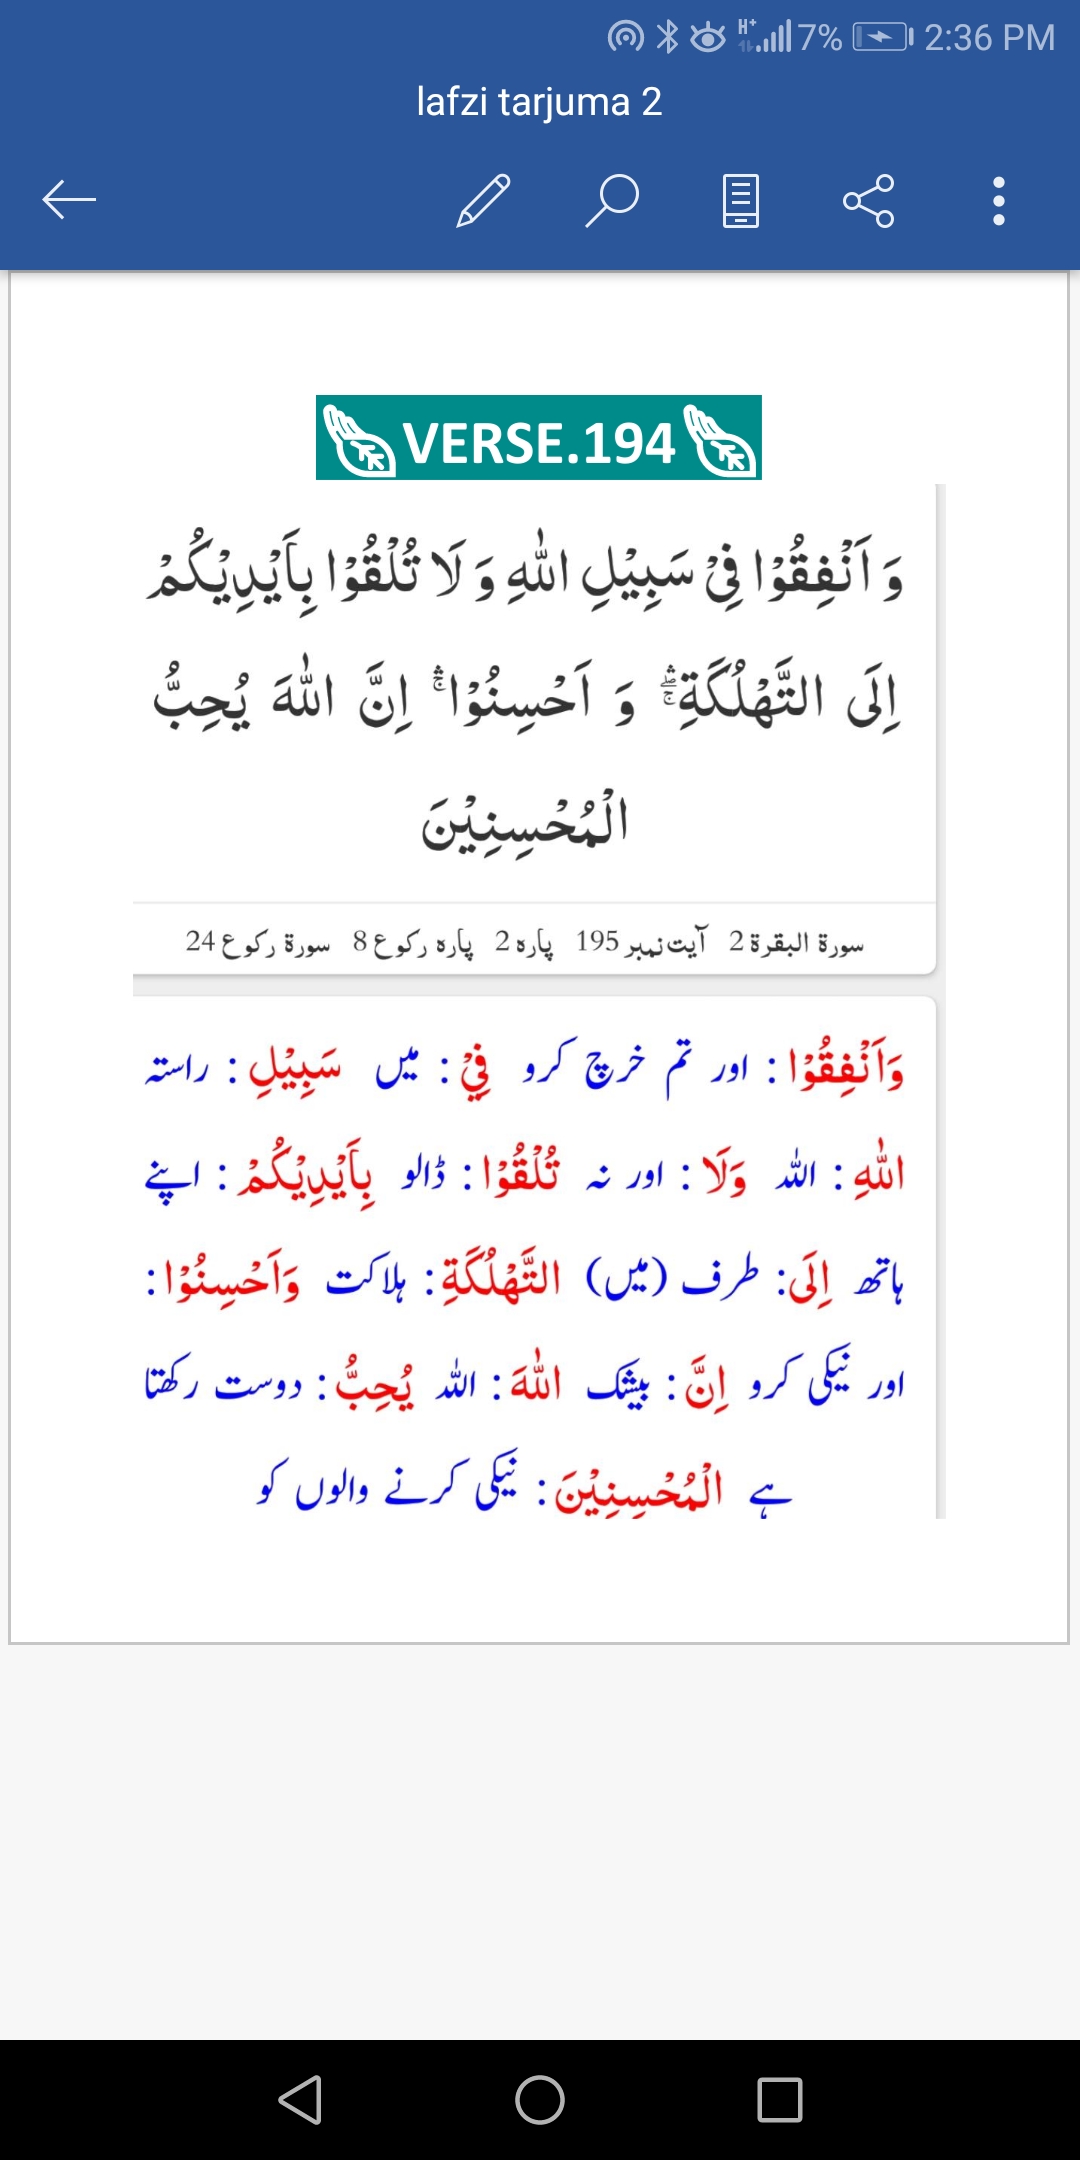 7% 2:36 PM
lafzi tarjuma 2
VERSE.194
وَ اَنْفِقُوْا فِیْ سَبِیْلِ اللّٰهِ وَ لَا تُلْقُوْا بِاَیْدِیْكُمْ
اِلَى التَّهْلُكَةِ ۛۚ وَ اَحْسِنُوْا ۛۚ اِنَّ اللّٰهَ یُحِبُّ
الْمُحْسِنِیْنَ
سورۃ البقرۃ 2 آیت نمبر 195 پارہ 2 پارہ رکوع 8 سورۃ رکوع 24
وَاَنْفِقُوْا : اور تم خرچ کرو فِيْ : میں سَبِيْلِ : راستہ
اللّٰهِ : اللہ وَلَا : اور نہ تُلْقُوْا : ڈالو بِاَيْدِيْكُمْ : اپنے
ہاتھ اِلَى : طرف (میں) التَّهْلُكَةِ : ہلاکت وَاَحْسِنُوْا :
اور نیکی کرو اِنَّ : بیشک اللّٰهَ : اللہ يُحِبُّ : دوست رکھتا
ہے الْمُحْسِنِيْنَ : نیکی کرنے والوں کو